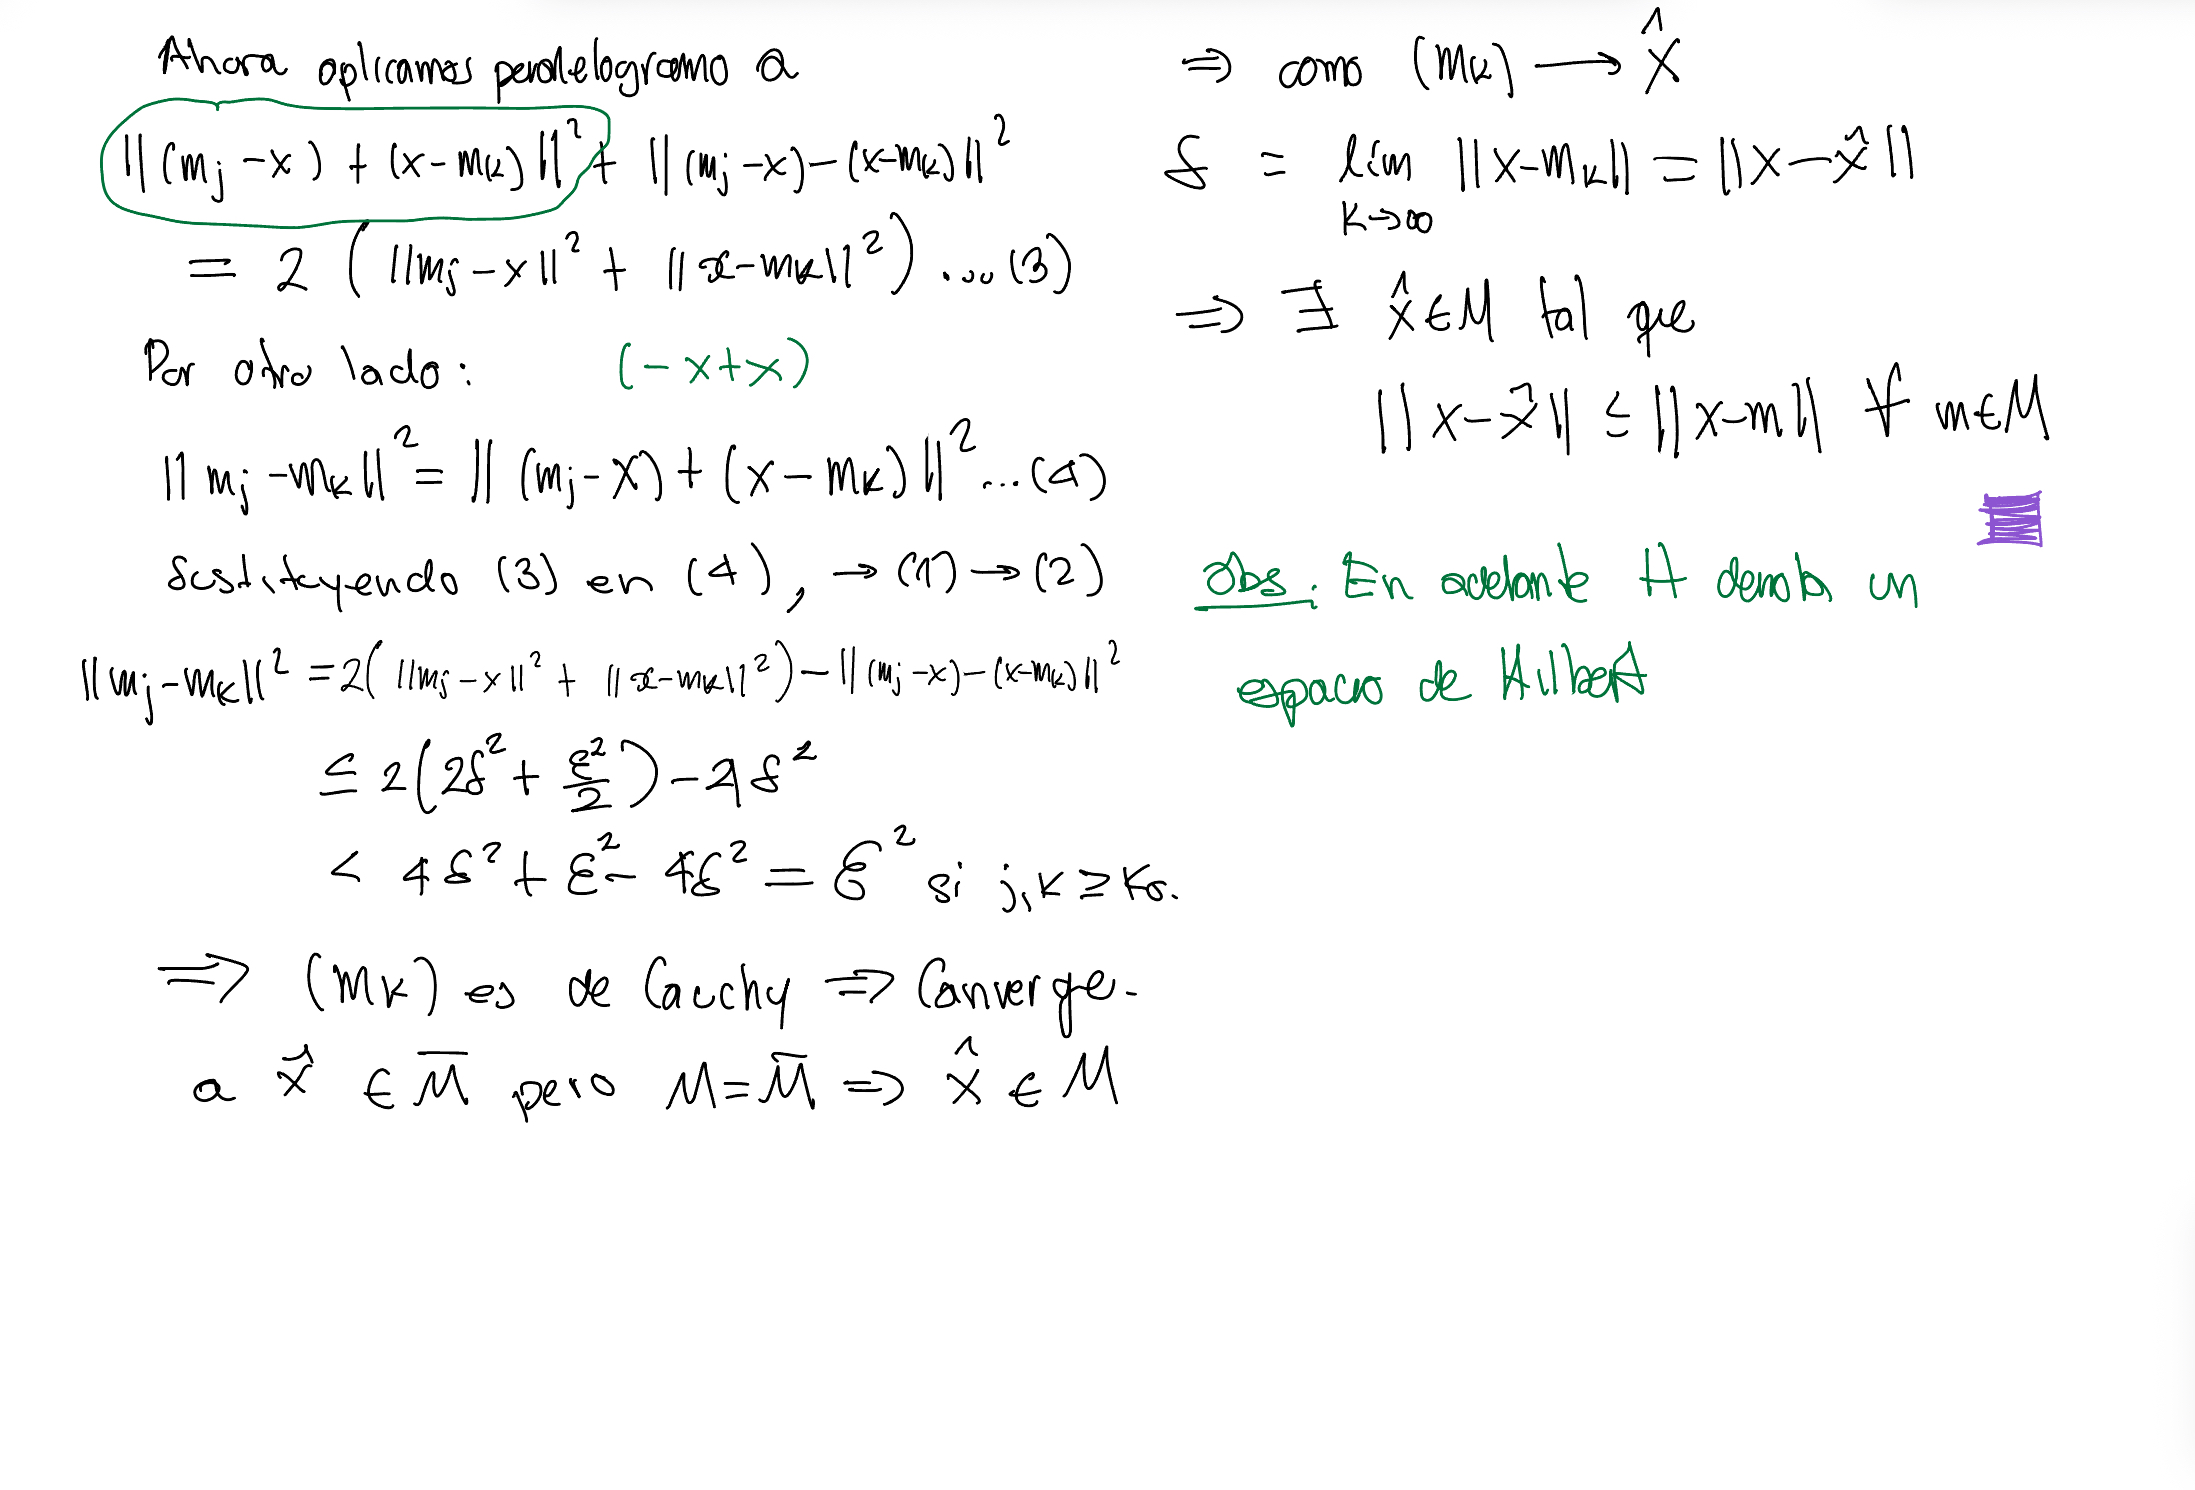 Ahora aplicamos paralelogramo a
||(mj -x) + (x-mk)||² + ||(mj -x)-(x-mk)||²
= 2 (||mj -x||² + ||x-mk||²) ...(3)
Por otro lado: (-x+x)
||mj -mk||² = ||(mj-x)+(x-mk)||² ...(4)
Sustituyendo (3) en (4), → (1) → (2)
||mj-mk||² = 2(||mj -x||² + ||x-mk||²)-||(mj -x)-(x-mk)||²
≤ 2(2δ² + ε²/2) - 4δ²
< 4δ² + ε² - 4δ² = ε² si j,k ≥ k₀.
⇒ (mk) es de Cauchy ⇒ Converge.
a x̂ ∈ M̅ pero M=M̅ ⇒ x̂ ∈ M
⇒ como (mk) → x̂
δ = lím ||x-mk|| = ||x-x̂||
k→∞
⇒ ∃ x̂∈M tal que
||x-x̂|| ≤ ||x-m|| ∀ m∈M
Obs: En adelante H denota un
espacio de Hilbert